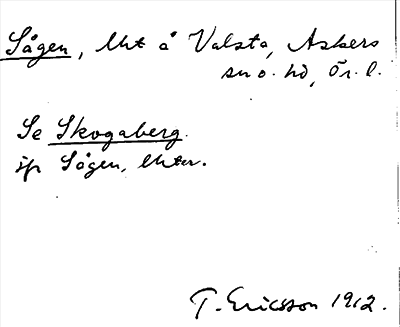 Sågen, lht å Valsta, Askers
sn o. hd, Ör. l.
Se Skogaberg.
jfr Sågen, lhter.
T. Ericsson 1912.